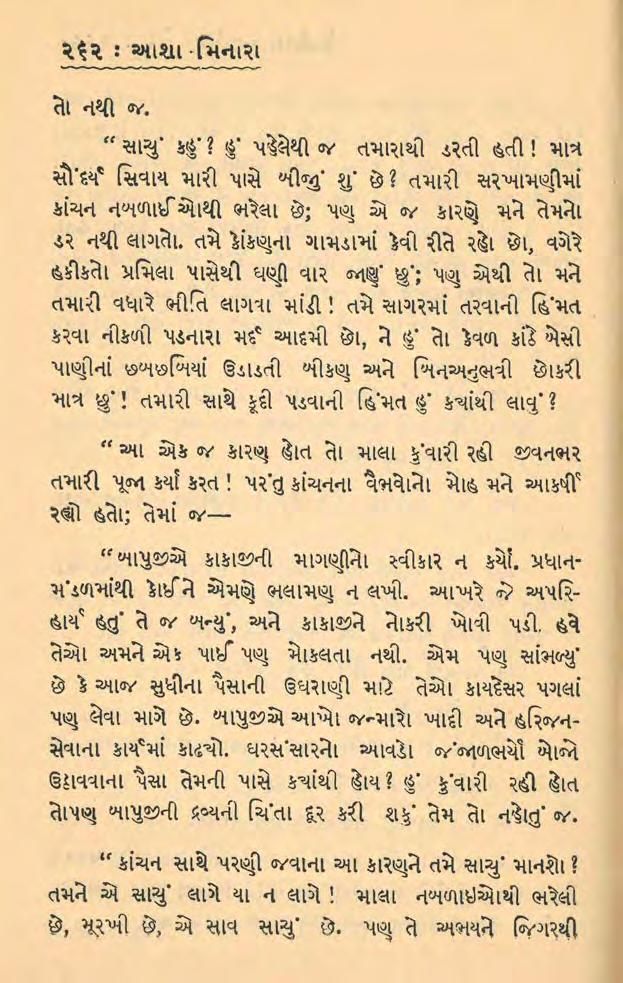 ૨૬૨ : આશા મિનારા
તો નથી જ.
“ સાચું કહું ? હું પહેલેથી જ તમારાથી ડરતી હતી ! માત્ર
સૌંદર્ય સિવાય મારી પાસે બીજું શું છે ? તમારી સરખામણીમાં
કાંચન નબળાઈઓથી ભરેલા છે; પણ એ જ કારણે મને તેમનો
ડર નથી લાગતો. તમે કોંકણના ગામડામાં કેવી રીતે રહો છો, વગેરે
હકીકતો પ્રમિલા પાસેથી ઘણી વાર જાણું છું; પણ એથી તો મને
તમારી વધારે ભીતિ લાગવા માંડી ! તમે સાગરમાં તરવાની હિંમત
કરવા નીકળી પડનારા મર્દ આદમી છો, ને હું તો કેવળ કાંઠે બેસી
પાણીનાં છબછબિયાં ઉડાડતી બીકણ અને બિનઅનુભવી છોકરી
માત્ર છું ! તમારી સાથે કૂદી પડવાની હિંમત હું ક્યાંથી લાવું ?
“ આ એક જ કારણ હોત તો માલા કુંવારી રહી જીવનભર
તમારી પૂજા કર્યા કરત ! પરંતુ કાંચનના વૈભવોનો મોહ મને આકર્ષી
રહ્યો હતો; તેમાં જ—
“ બાપુજીએ કાકાજીની માગણીનો સ્વીકાર ન કર્યો. પ્રધાન-
મંડળમાંથી કોઈને એમણે ભલામણ ન લખી. આખરે જે અપરિ-
હાર્ય હતું તે જ બન્યું, અને કાકાજીને નોકરી ખોવી પડી. હવે
તેઓ અમને એક પાઈ પણ મોકલતા નથી. એમ પણ સાંભળ્યું
છે કે આજ સુધીના પૈસાની ઉઘરાણી માટે તેઓ કાયદેસર પગલાં
પણ લેવા માગે છે. બાપુજીએ આખો જન્મારો ખાદી અને હરિજન-
સેવાના કાર્યમાં કાઢ્યો. ઘરસંસારનો આવડો જંજાળભર્યો બોજો
ઉઠાવવાના પૈસા તેમની પાસે ક્યાંથી હોય ? હું કુંવારી રહી હોત
તોપણ બાપુજીની દ્રવ્યની ચિંતા દૂર કરી શકું તેમ તો નહોતું જ.
“ કાંચન સાથે પરણી જવાના આ કારણને તમે સાચું માનશો ?
તમને એ સાચું લાગે યા ન લાગે ! માલા નબળાઇઓથી ભરેલી
છે, મૂરખી છે, એ સાવ સાચું છે. પણ તે અભયને જિગરથી